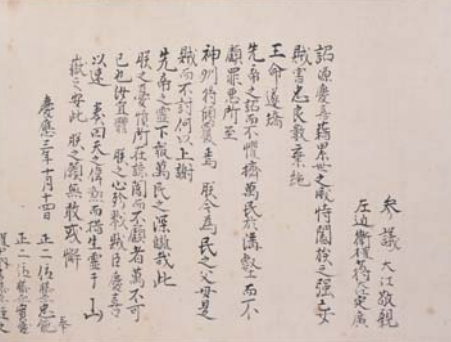 参議 大江敬親
左近衛權少将大江定廣
詔源慶喜藉累世之威恃闔族之強妄
賊害忠良數棄絶
王命遂矯
先帝之詔而不懼擠萬民於溝壑而不
顧罪惡所至
神州将傾覆焉 朕今為民之父母是
賊而不討何以上謝
先帝之靈下報萬民之深讐哉此
朕之憂憤所在諒闇而不顧者萬不可
已也汝宜體 朕之心殄戮賊臣慶喜
以速 奏回天之偉勲而措生靈于山
嶽之安此 朕之願無敢或懈
慶應三年十月十四日
正二位藤原忠能
正二位藤原實愛
奉